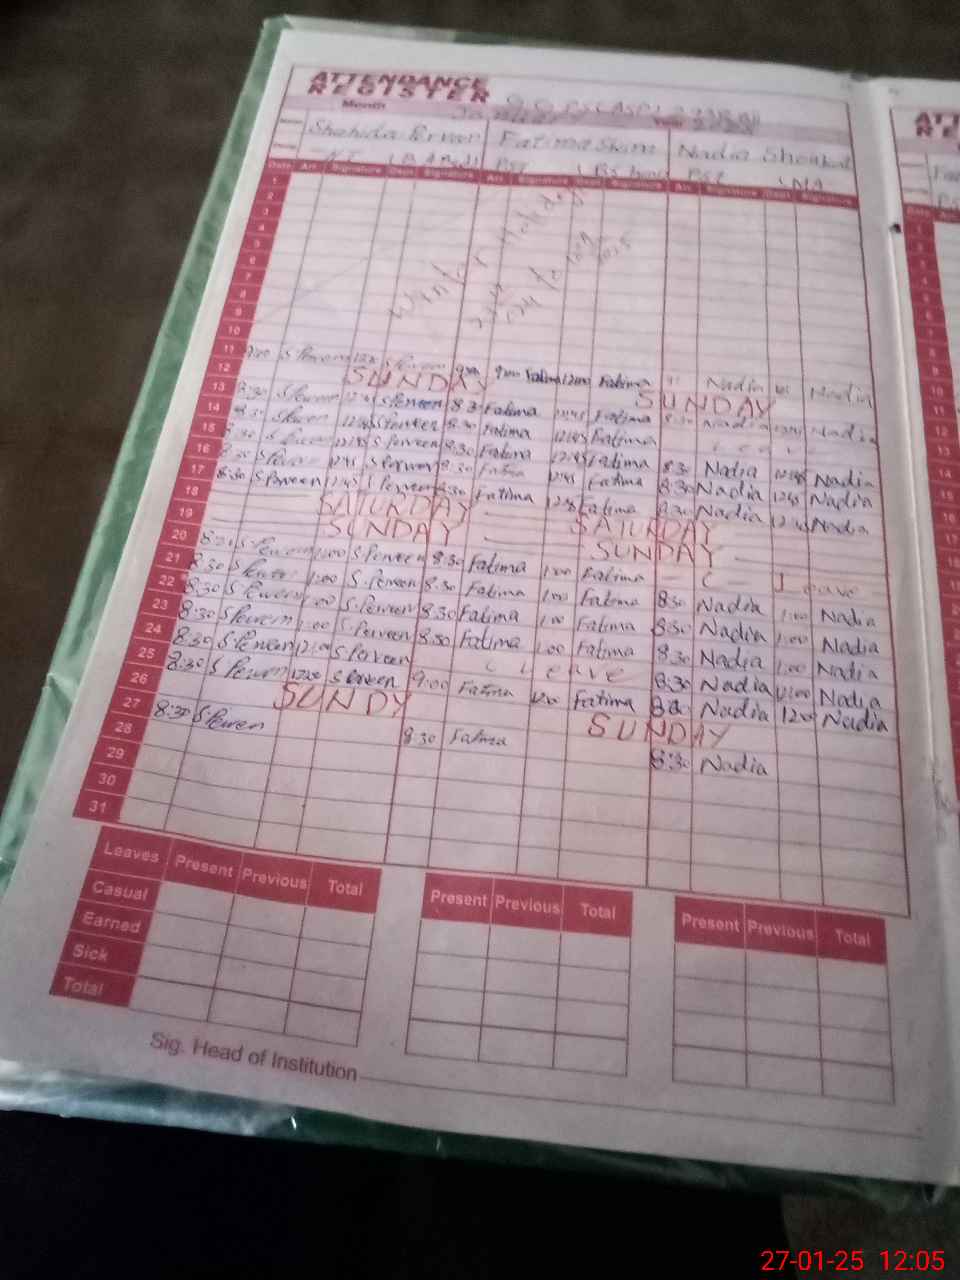 ATTENDANCE
REGISTER
Month
Shahida Perveen Fatima Nadia Shoukat
PST PST
Date Arr. Signature Dept. Signature Arr. Signature Dept. Signature Arr. Signature Dept. Signature
1
2
3
4
5
6
7
8
9
10
Winter Holiday
11 9:00 S Perveen S Perveen 9:00 Fatima 12:00 Fatima Nadia Nadia
12 SUNDAY SUNDAY
13 8:30 S Perveen 12:45 S Perveen 8:30 Fatima 12:45 Fatima 8:30 Nadia 12:45 Nadia
14 8:30 S Perveen 12:45 S Perveen 8:30 Fatima 12:45 Fatima Leave
15 8:30 S Perveen 12:45 S Perveen 8:30 Fatima 12:45 Fatima 8:30 Nadia 12:45 Nadia
16 S Perveen 12:45 S Perveen 8:30 Fatima 12:45 Fatima 8:30 Nadia 12:45 Nadia
17 8:30 S Perveen 12:45 S Perveen 8:30 Fatima 12:45 Fatima 8:30 Nadia 12:45 Nadia
18 SATURDAY SATURDAY
19 SUNDAY SUNDAY
20 S Perveen 1:00 S. Perveen 8:30 Fatima 1:00 Fatima Leave
21 8:30 S Perveen 1:00 S. Perveen 8:30 Fatima 1:00 Fatima 8:30 Nadia 1:00 Nadia
22 8:30 S Perveen 1:00 S. Perveen 8:30 Fatima 1:00 Fatima 8:30 Nadia 1:00 Nadia
23 8:30 S Perveen 1:00 S. Perveen 8:30 Fatima 1:00 Fatima 8:30 Nadia 1:00 Nadia
24 8:30 S Perveen 12:00 S Perveen Leave 8:30 Nadia 12:00 Nadia
25 8:30 S Perveen 12:00 S Perveen 9:00 Fatima 12:00 Fatima Nadia 12:00 Nadia
26 SUNDY SUNDAY
27 8:30 S Perveen 8:30 Fatima 8:30 Nadia
28
29
30
31
Leaves Present Previous Total Present Previous Total Present Previous Total
Casual
Earned
Sick
Total
Sig. Head of Institution
27-01-25 12:05